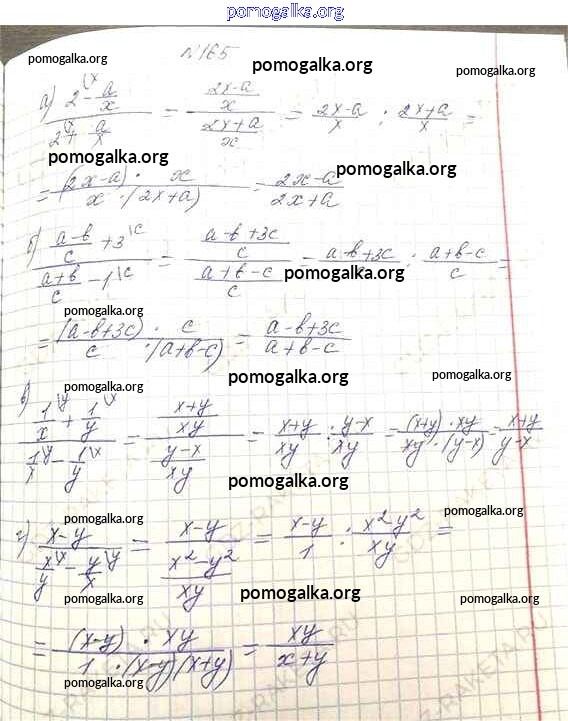 pomogalka.org
№165
pomogalka.org
pomogalka.org
pomogalka.org
а) (2\x - a/x) / (2\x + a/x) = ((2x-a)/x) / ((2x+a)/x) = (2x-a)/x : (2x+a)/x =
pomogalka.org
pomogalka.org
= ((2x-a) · x) / (x · (2x+a)) = (2x-a)/(2x+a)
б) ((a-b)/c + 3\c) / ((a+b)/c - 1\c) = ((a-b+3c)/c) / ((a+b-c)/c) = (a-b+3c)/c : (a+b-c)/c =
pomogalka.org
pomogalka.org
= ((a-b+3c) · c) / (c · (a+b-c)) = (a-b+3c)/(a+b-c)
pomogalka.org
pomogalka.org
в) (1/x\y + 1/y\x) / (1/x\y - 1/y\x) = ((x+y)/xy) / ((y-x)/xy) = (x+y)/xy : (y-x)/xy = ((x+y) · xy) / (xy · (y-x)) = (x+y)/(y-x)
pomogalka.org
pomogalka.org
pomogalka.org
г) (x-y) / (x/y\x - y/x\y) = (x-y) / ((x²-y²)/xy) = (x-y)/1 : (x²-y²)/xy =
pomogalka.org
pomogalka.org
= ((x-y) · xy) / (1 · (x-y)(x+y)) = xy/(x+y)
pomogalka.org
pomogalka.org